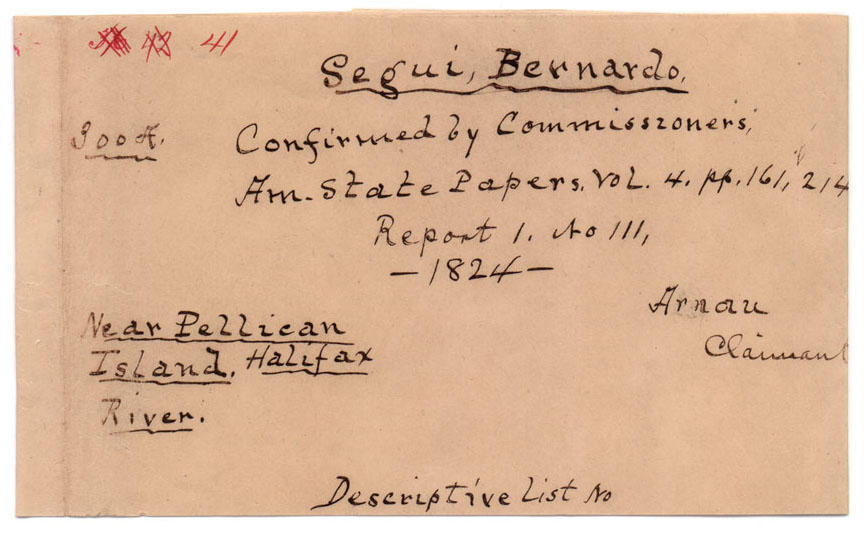 41
Segui, Bernardo.
300 A.
Confirmed by Commissioners,
Am. State Papers. Vol. 4. pp. 161, 214
Report 1. No 111,
— 1824 —
Arnau
Claimant
Near Pellican
Island. Halifax
River.
Descriptive List No